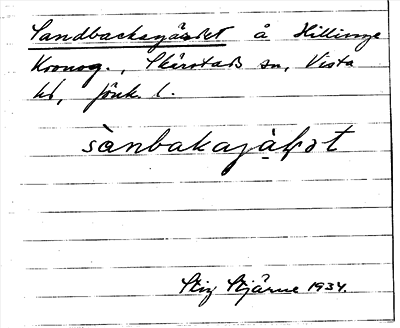 Sandbacksgärdet å Hillinge
Kronog., Skärstads sn, Vista
hd, Jönk. l.
sànbakajàḷət
Stig Stjärne 1934.